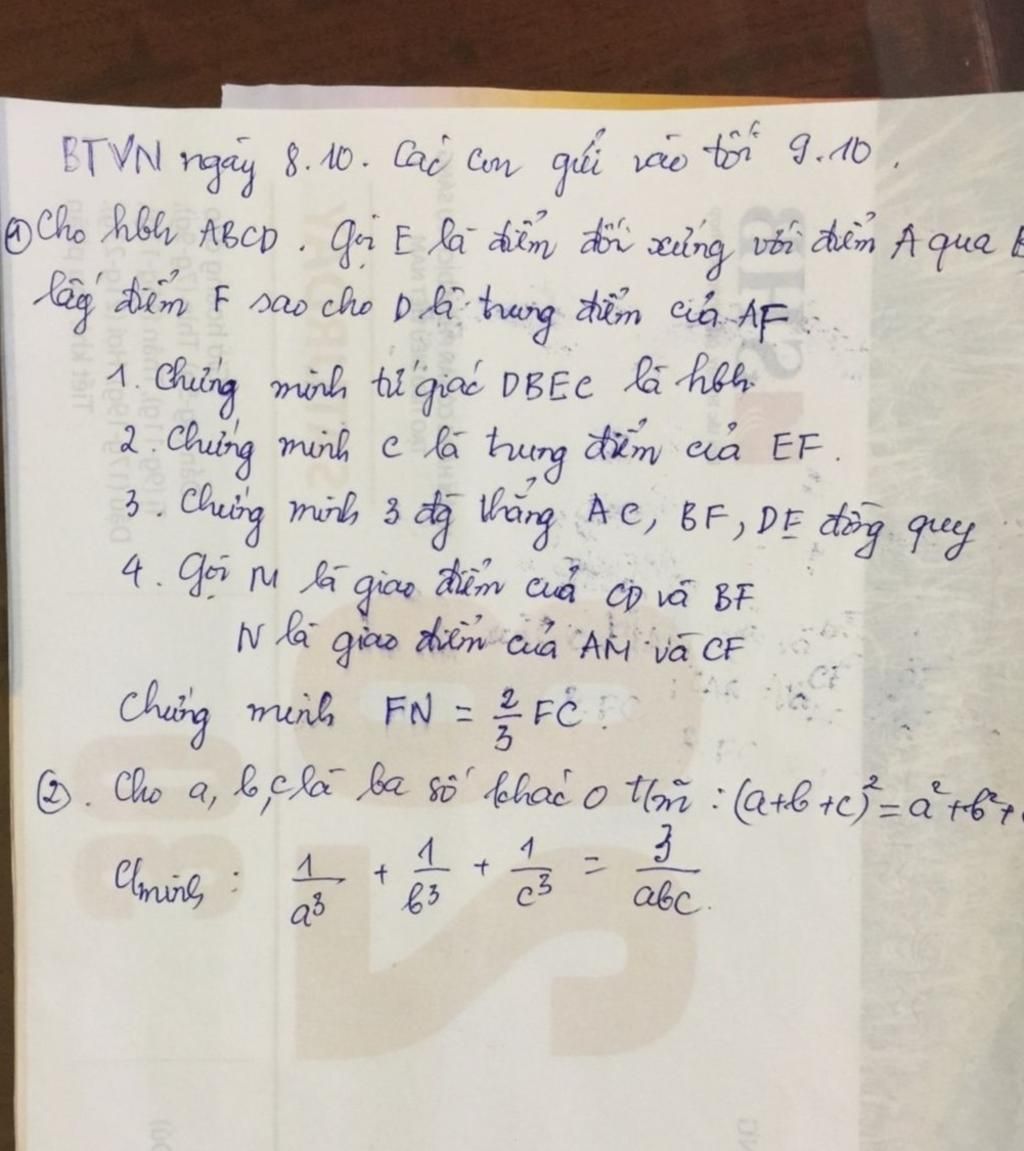 BTVN ngày 8.10. Các con gửi vào tối 9.10.
① Cho hbh ABCD. Gọi E là điểm đối xứng với điểm A qua B
lấy điểm F sao cho D là trung điểm của AF.
1. Chứng minh tứ giác DBEC là hbh.
2. Chứng minh C là trung điểm của EF.
3. Chứng minh 3 đg thẳng AC, BF, DE đồng quy
4. Gọi M là giao điểm của CD và BF
N là giao điểm của AM và CF
Chứng minh FN = 2/3 FC.
②. Cho a, b, c là ba số khác 0 t/m : (a+b+c)² = a²+b²+
Cminh : 1/a³ + 1/b³ + 1/c³ = 3/abc.
SHB